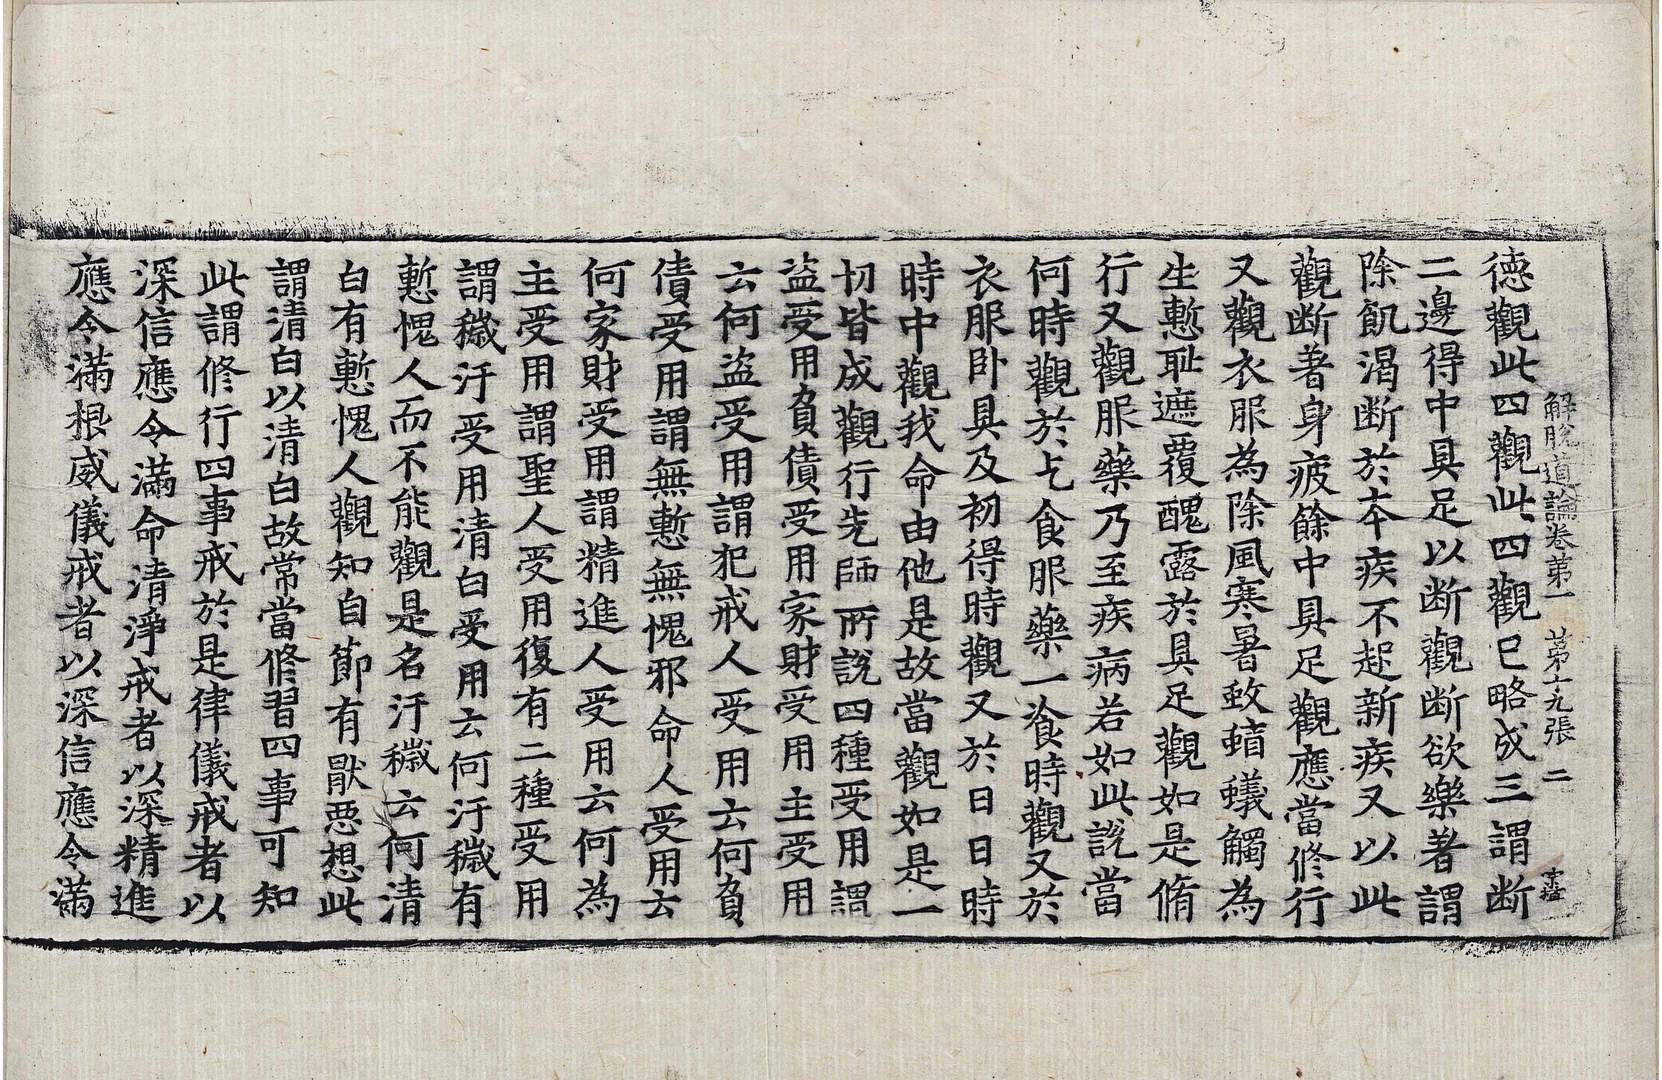 解脫道論卷第一 第十九張 二
德觀此四觀此四觀已略成三謂断
二邊得中具足以断觀断欲樂著謂
除飢渴断於本疾不起新疾又以此
觀断著身疲餘中具足觀應當修行
又觀衣服為除風寒暑蚊蝱蟻觸為
生慙耻遮覆醜露於具足觀如是脩
行又觀服藥乃至疾病若如此說當
何時觀於乞食服藥一飡時觀又於
衣服卧具及初得時觀又於日日時
時中觀我命由他是故當觀如是一
切皆成觀行先師所說四種受用謂
盗受用負債受用家財受用主受用
云何盗受用謂犯戒人受用云何負
債受用謂無慙無愧邪命人受用云
何家財受用謂精進人受用云何為
主受用謂聖人受用復有二種受用
謂穢汙受用清白受用云何汙穢有
慙愧人而不能觀是名汙穢云何清
白有慙愧人觀知自節有猒惡想此
謂清白以清白故常當修習四事可知
此謂修行四事戒於是律儀戒者以
深信應令滿命清淨戒者以深精進
應令滿根威儀戒者以深信應令滿